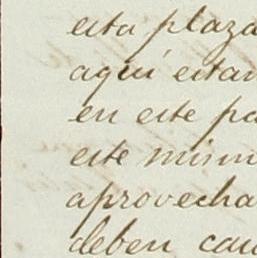 esta plaza
aquí estan
en este pa
este mism
aprovecha
deben cau